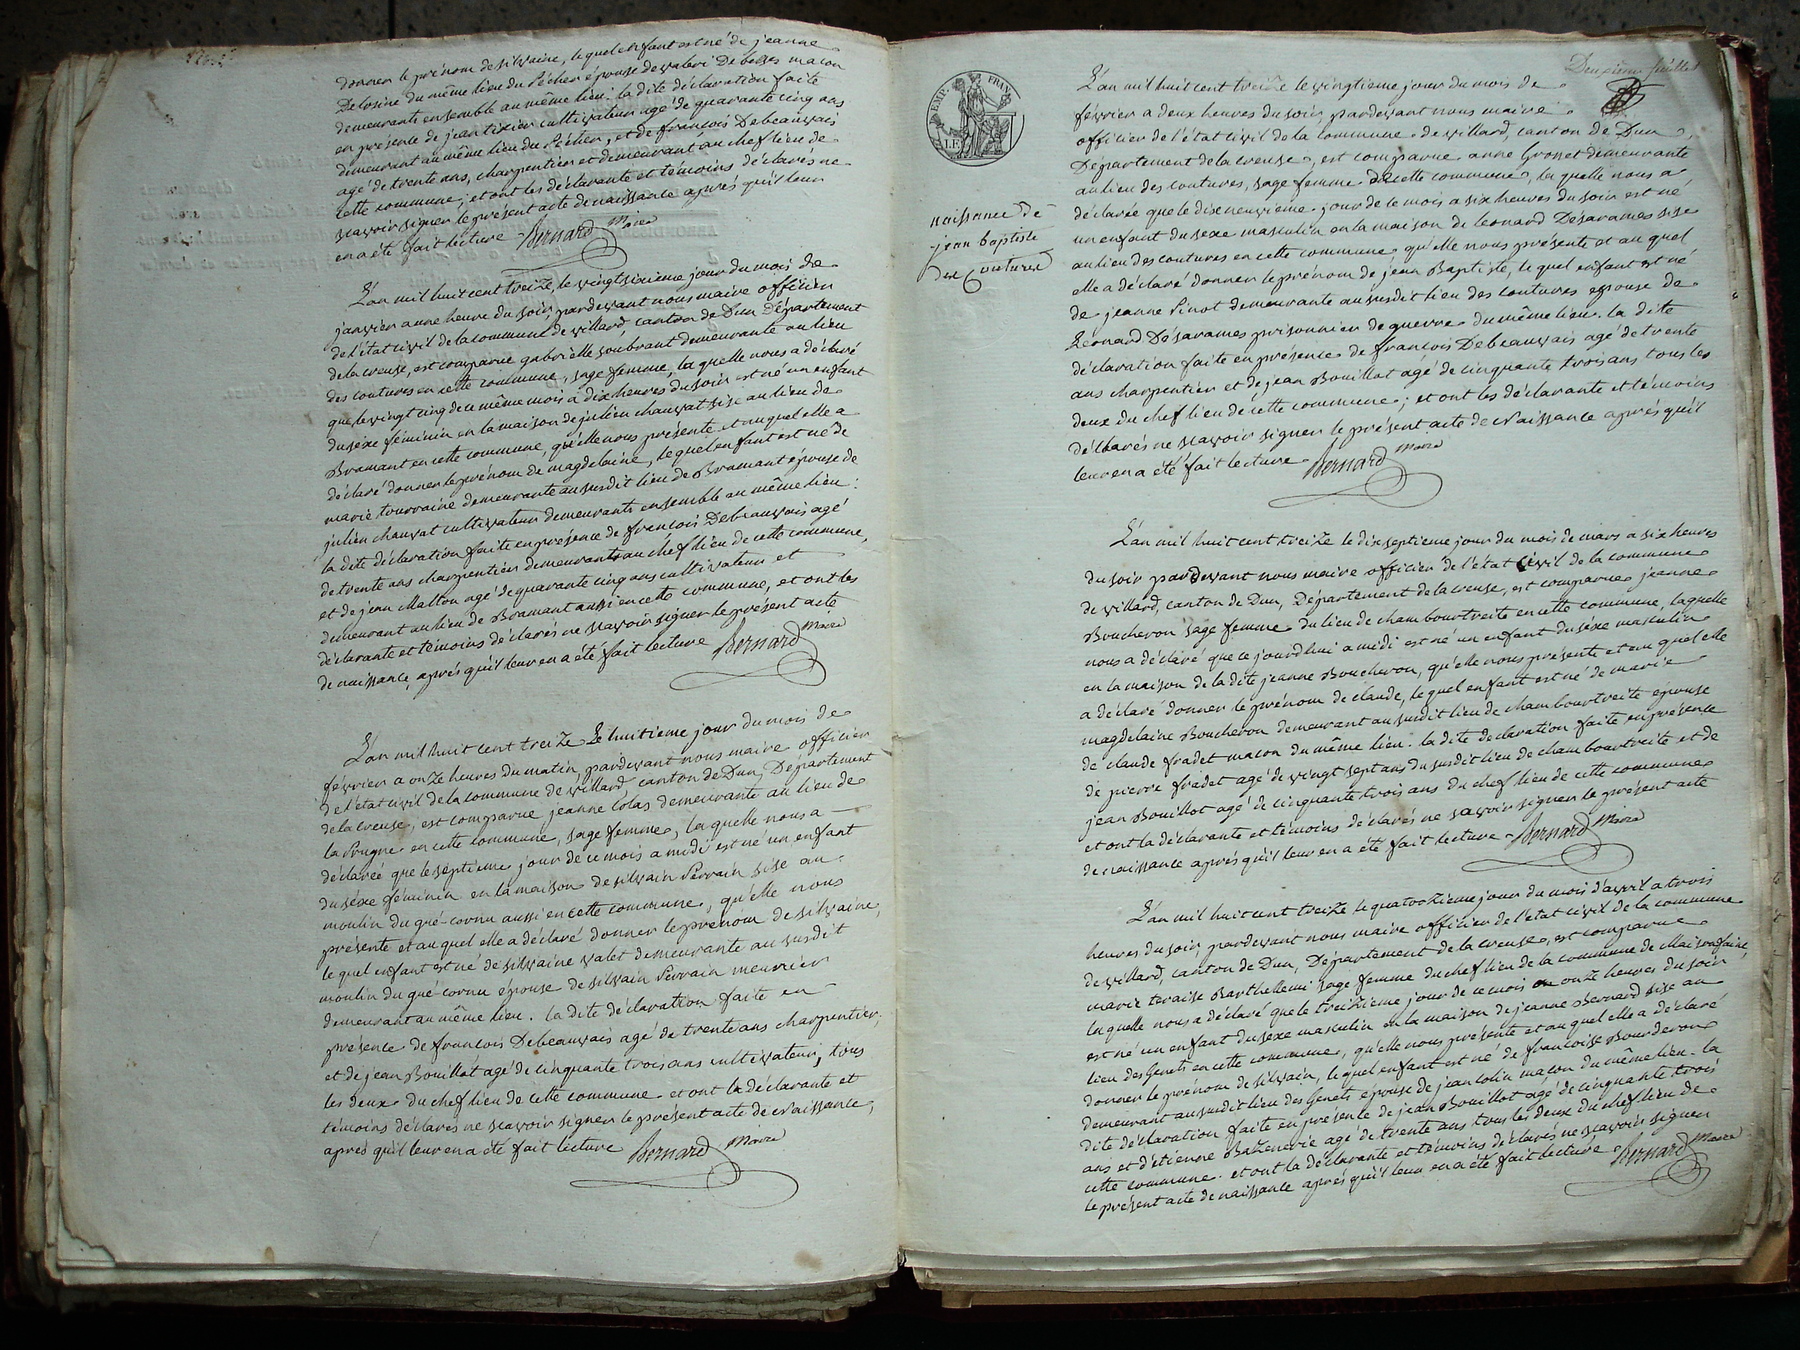 donner le prénom de silvaine, le quel enfant est né de jeanne
Delosine du même lieu du Pécher épouse de valeri Deboges macon
demeurants ensemble au même lieu. la dite déclaration faite
en présence de jean tixier cultivateur agé de quarante cinq ans
demeurant au même lieu du Pécher, et de françois Debeauvais
agé de trente ans, charpentier et demeurant au chef lieu de
cette commune, et ont les déclarante et témoins déclarés ne
sçavoir signer le présent acte de naissance après qu'il leur
en a été fait lecture Bernard Maire
L'an mil huit cent treize, le vingt sixieme jour du mois de
janvier a une heure du soir, pardevant nous maire officier
de l'état civil de la commune de villard, canton de Dun Département
de la creuse, est comparue gabrielle soubrant demeurante au lieu
des coutures en cette commune, sage femme, la quelle nous a déclaré
que le vingt cinq de ce même mois a dix heures du soir est né un enfant
du sexe féminin en la maison de julien chauvat sise au lieu de
Bramant en cette commune, qu'elle nous présente et auquel elle a
déclaré donner le prénom de magdelaine, le quel enfant est né de
marie tourraine demeurante au susdit lieu de Bramant épouse de
julien chauvat cultivateur demeurants ensemble au même lieu:
la dite déclaration faite en présence de françois Debeauvais agé
de trente ans charpentier demeurant au chef lieu de cette commune,
et de jean Matton agé de quarante cinq ans cultivateur et
demeurant au lieu de Bramant aussi en cette commune, et ont les
déclarante et témoins déclarés ne sçavoir signer le présent acte
de naissance, après qu'il leur en a été fait lecture Bernard Maire
L'an mil huit cent treize Le huitieme jour du mois de
février a onze heures du matin, pardevant nous maire officier
de l'état civil de la commune de villard, canton de Dun, Département
de la creuse, est comparue jeanne Colas demeurante au lieu de
la Prugne en cette commune, sage femme, la quelle nous a
déclaré que le septieme jour de ce mois a midi est né un enfant
du sexe féminin en la maison de silvain Perrain sise au
moulin du gué-cornu aussi en cette commune, qu'elle nous
présente et au quel elle a déclaré donner le prénom de silvaine,
le quel enfant est né de silvaine valet demeurante au susdit
moulin du gué-cornu épouse de silvain Perrain meunier
demeurant au même lieu. la dite déclaration faite en
présence de françois Debeauvais agé de trente ans charpentier,
et de jean Bouillot agé de cinquante trois ans cultivateur, tous
les deux du chef lieu de cette commune et ont la déclarante et
témoins déclarés ne sçavoir signer le présent acte de Naissance,
après qu'il leur en a été fait lecture Bernard Maire
Deuxieme feuillet
EMP. FRAN.
naissance de
jean baptiste
des Coutures
L'an mil huit cent treize le vingtieme jour du mois de
février a deux heures du soir, pardevant nous maire
officier de l'état civil de la commune de villard, canton de Dun,
Département de la creuse, est comparue anne Gronet demeurante
au lieu des coutures, sage femme de cette commune, la quelle nous a
déclarée que le dixneuvieme jour de ce mois a six heures du soir est né
un enfant du sexe masculin en la maison de Leonard Desarames sise
au lieu des coutures en cette commune, qu'elle nous présente et au quel
elle a déclaré donner le prénom de jean Baptiste, le quel enfant est né
de jeanne Pinot demeurante au susdit lieu des coutures epouse de
Léonard Désarames prisonnier de guerre du même lieu. la dite
déclaration faite en présence de françois Debeauvais agé de trente
ans charpentier et de jean Bouillot agé de cinquante trois ans tous les
deux du chef lieu de cette commune; et ont les déclarante et témoins
déclarés ne sçavoir signer le présent acte de Naissance après qu'il
leur en a été fait lecture Bernard Maire
L'an mil huit cent treize le dix septieme jour du mois de mars a six heures
du soir pardevant nous maire officier de l'état Civil de la commune
de villard, canton de Dun, Département de la creuse, est comparue jeanne
Boucheron sage femme du lieu de chambourtreite en cette commune, laquelle
nous a déclaré que ce jourd'hui a midi est né un enfant du sexe masculin
en la maison de la dite jeanne Boucheron, qu'elle nous présente et au quel elle
a déclaré donner le prénom de claude, le quel enfant est né de marie
magdelaine Boucheron demeurant au susdit lieu de chambourtreite épouse
de claude fradet macon du même lieu. la dite déclaration faite en présence
de pierre fradet agé de vingt sept ans du susdit lieu de chambourtreite et de
jean Bouillot agé de cinquante trois ans du chef lieu de cette commune
et ont la déclarante et témoins déclarés ne savoir signer le présent acte
de naissance après qu'il leur en a été fait lecture Bernard Maire
L'an mil huit cent treize le quatorzieme jour du mois d'avril a trois
heures du soir, pardevant nous maire officier de l'état civil de la commune
de villard, canton de Dun, Département de la creuse, est comparue
marie teraise Barthellemi sage femme du chef lieu de la commune de Maisonfaine,
laquelle nous a déclaré que le treizieme jour de ce mois a onze heures du soir
est né un enfant du sexe masculin en la maison de jeanne Bernard sise au
lieu des Genets en cette commune, qu'elle nous présente et au quel elle a déclaré
donner le prénom de silvain, le quel enfant est né de françoise Bourderon
demeurant au susdit lieu des Genets épouse de jean Colin maçon du même lieu. la
dite déclaration faite en présente de jean Bouillot agé de cinquante trois
ans et d'étienne Bazenerie agé de trente ans tous les deux du chef lieu de
cette commune. et ont la déclarante et témoins déclarés ne sçavoir signer
le présent acte de naissance après qu'il leur en a été fait lecture Bernard Maire